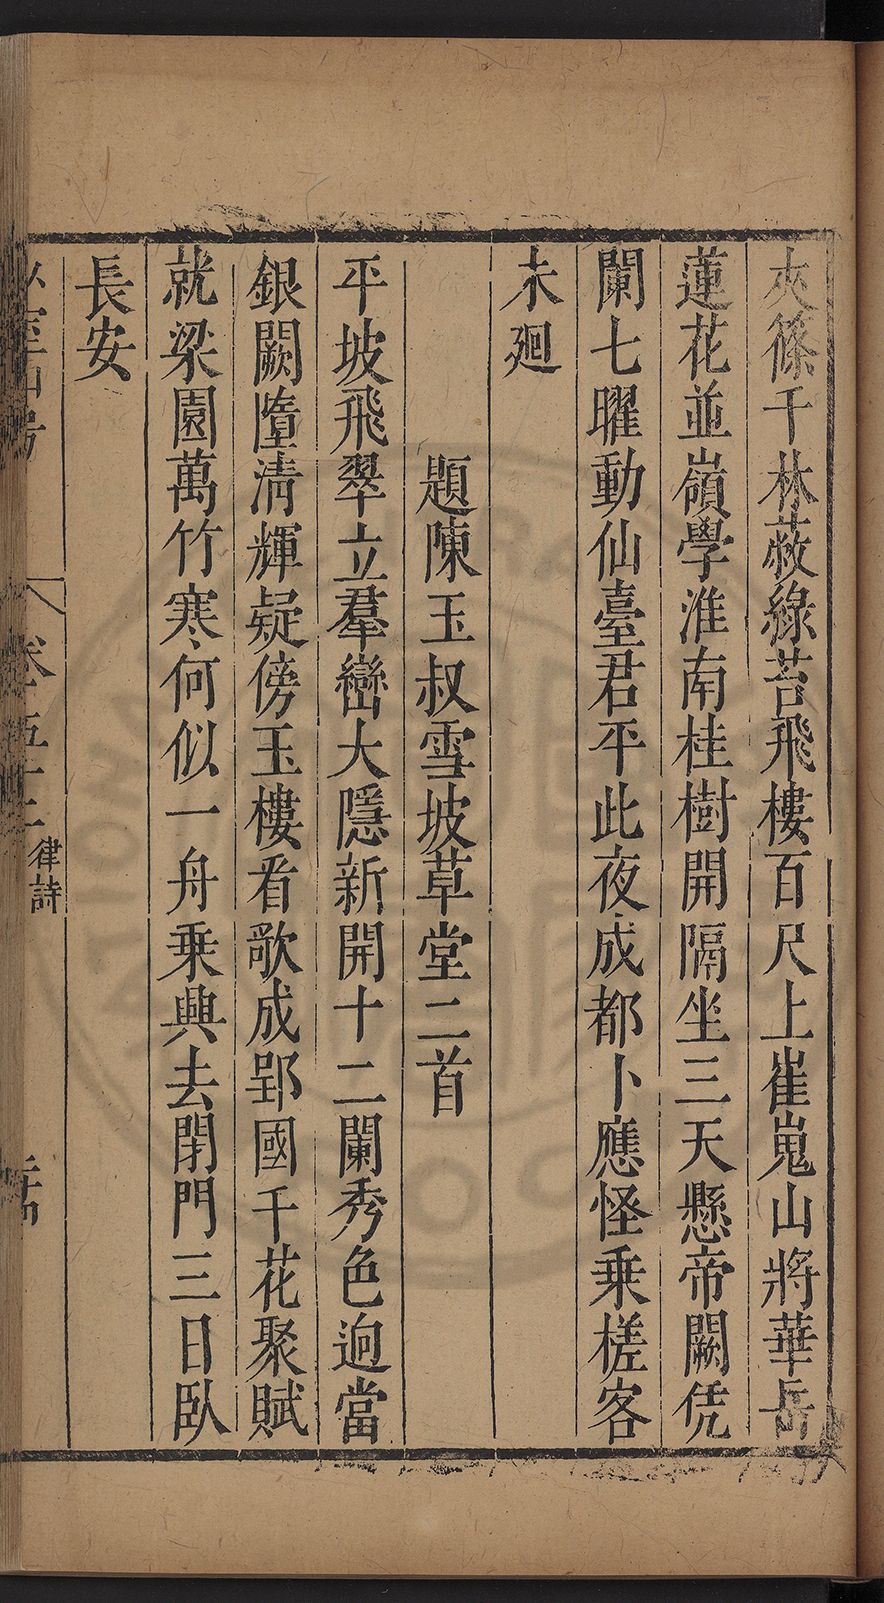 夾篠千林蔽綠苔飛樓百尺上崔嵬山將華岳
蓮花並嶺學淮南桂樹開隔坐三天懸帝闕凭
闌七曜動仙臺君平此夜成都卜應怪乗槎客
未廻
題陳玉叔雪坡草堂二首
平坡飛翠立羣巒大隱新開十二闌秀色逈當
銀闕墮清輝疑傍玉樓看歌成郢國千花聚賦
就梁園萬竹寒何似一舟乗興去閉門三日臥
長安
律詩